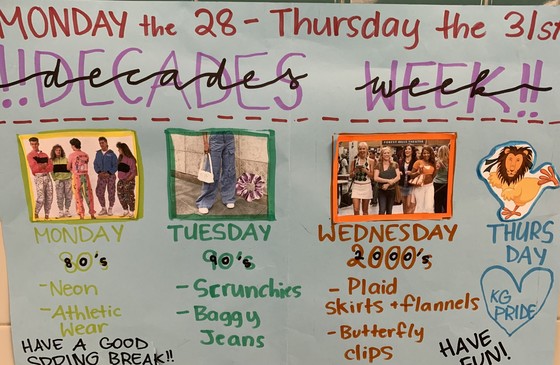 MONDAY the 28 - Thursday the 31st
!!DECADES WEEK!!
decades week
MONDAY
80's
- Neon
- Athletic
Wear
TUESDAY
90's
- Scrunchies
- Baggy
Jeans
WEDNESDAY
2000's
- Plaid
skirts + flannels
- Butterfly
clips
THURS
DAY
KG
PRIDE
HAVE A GOOD
SPRING BREAK!!
HAVE
FUN!